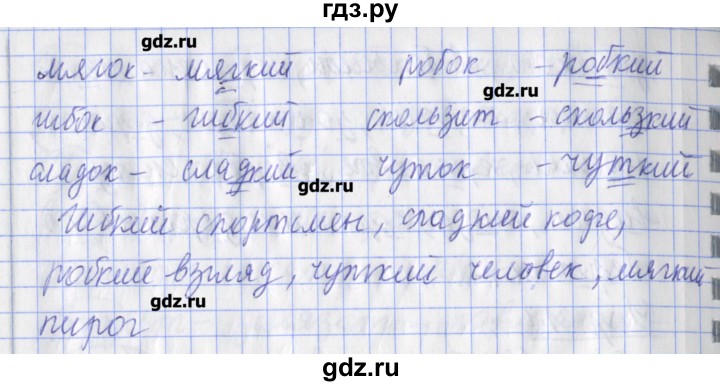 гдз.ру
gdz.ru
мягок - мягкий робок - робкий
gdz.ru
гибок - гибкий скользит - скользкий
сладок - сладкий чуток - чуткий
gdz.ru
Гибкий спортсмен, сладкий кофе,
робкий взгляд, чуткий человек, мягкий
gdz.ru
пирог
gdz.ru